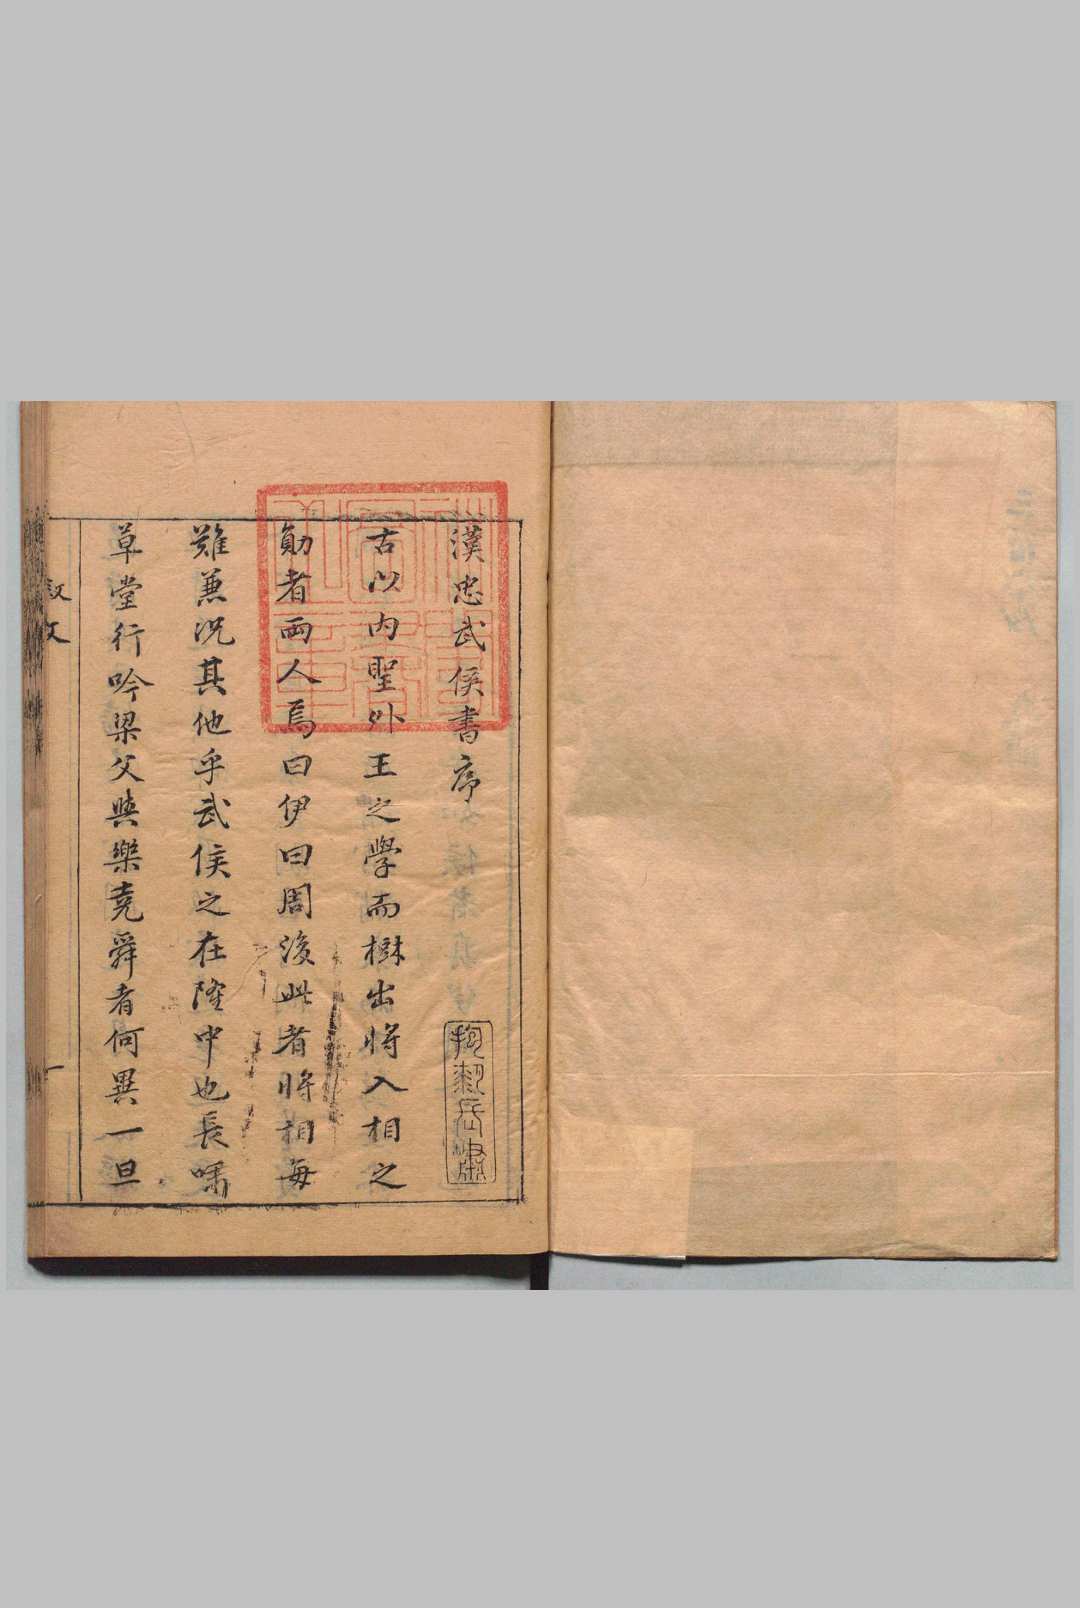 漢忠武侯書序
古以内聖外王之學而樹出將入相之
勛者兩人焉曰伊曰周後此者將相每
難兼況其他乎武侯之在隆中也長嘯
草堂行吟梁父與樂堯舜者何異一旦
敘文
一